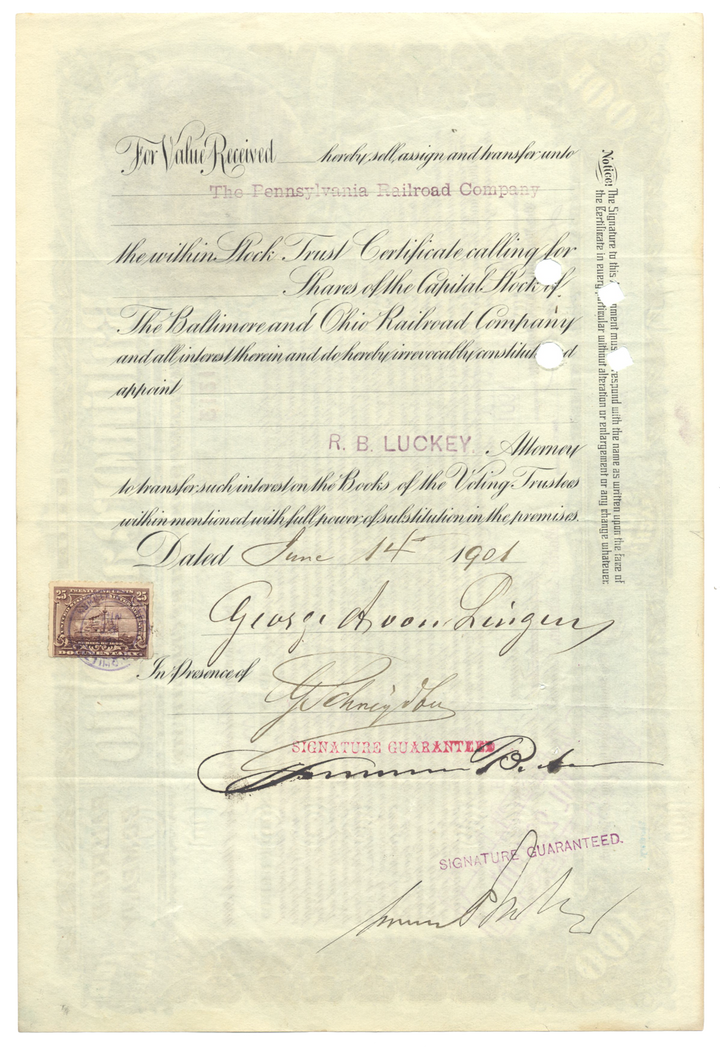 For Value Received hereby sell, assign and transfer unto
The Pennsylvania Railroad Company
the within Stock Trust Certificate calling for
Shares of the Capital Stock of
The Baltimore and Ohio Railroad Company
and all interest therein and do hereby irrevocably constitut d
appoint
R. B. LUCKEY. Attorney
to transfer such interest on the Books of the Voting Trustees
within mentioned with full power of substitution in the premises.
Dated June 14th 1901
George A von Lingen
25 25
DOCUMENTARY
In Presence of
SIGNATURE GUARANTEED
SIGNATURE GUARANTEED.
Notice! The Signature to this mus espond with the name as written upon the face of
the Certificate in every particular without alteration or enlargement or any change whatever.
100
100